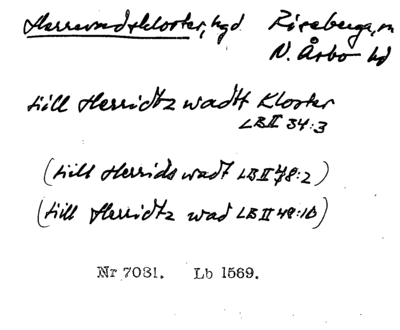 Herrevadskloster, hgd Riseberga, sn
N. Åsbo hd
till Herridtz wadtt Kloster
LB II 34:3
(till Herrids wadt LB II 48:2)
(till Herridtz wad LB II 49:10)
Nr 7031. Lb 1569.